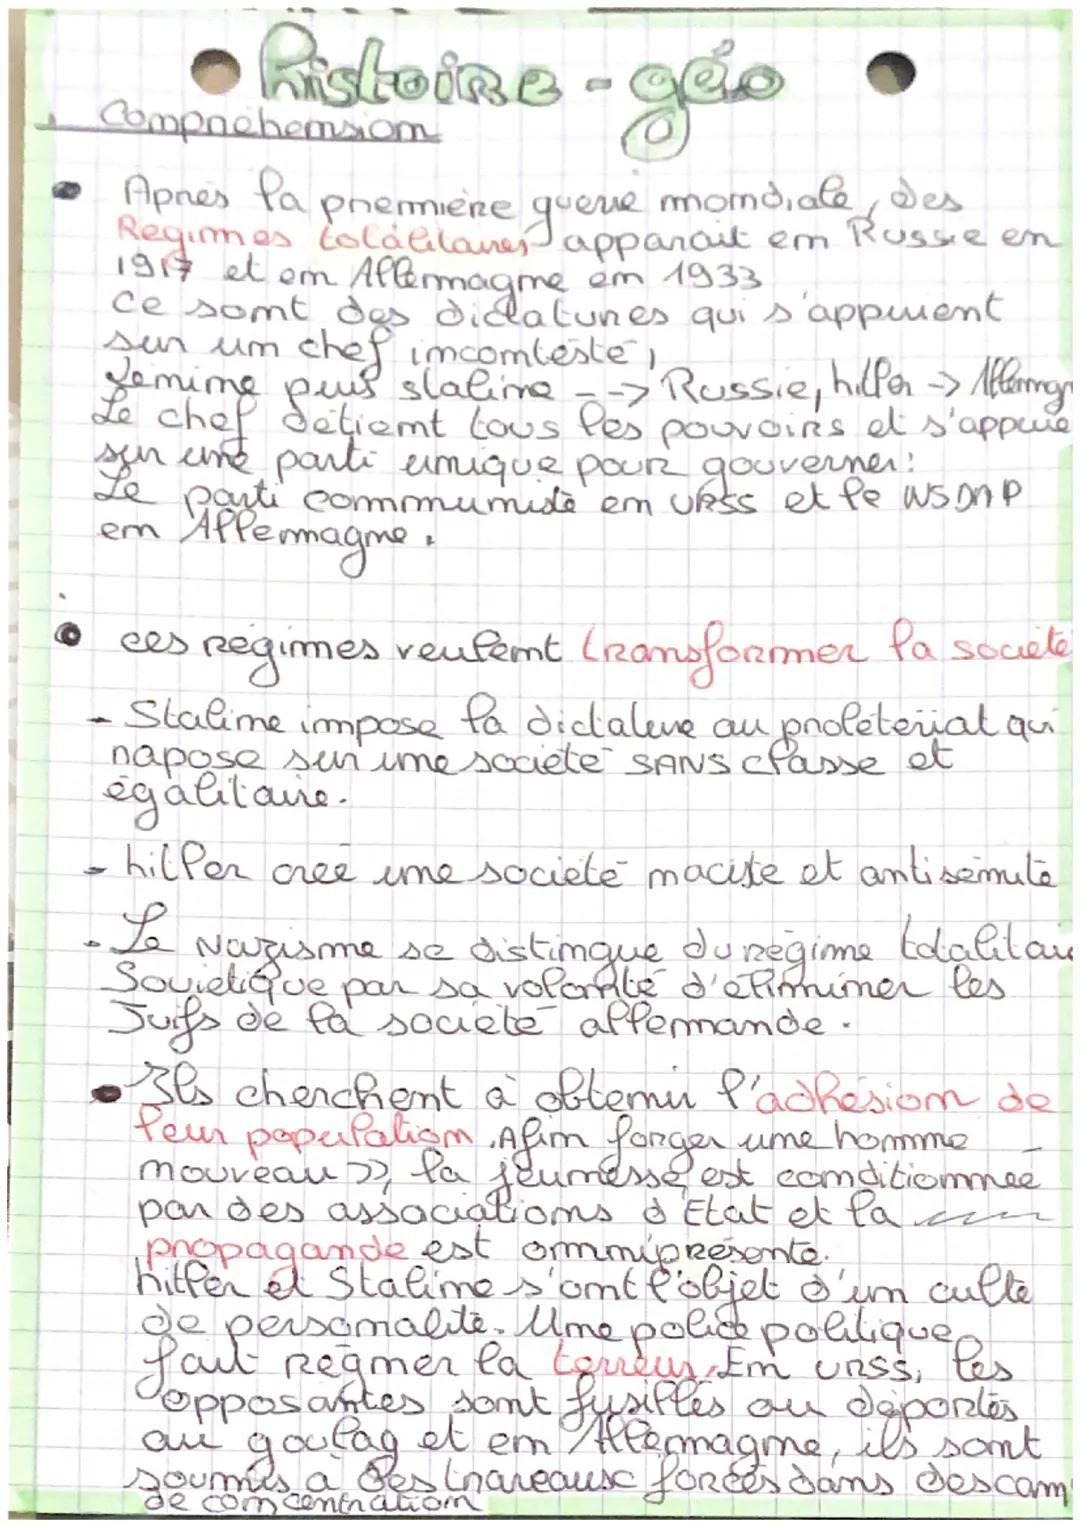 histoire - géo
Compréhension
Après la première guerre mondiale, des
Regimes totalitaires apparait en Russie en
1917 et en Allemagne en 1933
ce sont des dictatures qui s'appuient
sur un chef incontesté,
Lénine puis staline --> Russie, hitler ->
Le chef détient tous les pouvoirs et s'appuie
sur une parti unique pour gouverner:
Le parti communiste en URSS et le NSDAP
en Allemagne.
ces régimes veulent transformer la société
- Staline impose la dictature au proléteriat qui
rapose sur une société SANS classe et
égalitaire.
- hitler creé une société raciste et antisémite
- Le Nazisme se distingue du régime
Soviétique par sa volonté d'éliminer les
Juifs de la société allemande.
Ils cherchent à obtenir l'adhésion de
leur population. Afin forger une homme
nouveau >>, la jeunesse est conditionnée
par des associations d'Etat et la
propagande est omniprésente.
hitler et Staline s'ont l'objet d'un culte
de personalité. Une police politique
fait régner la terreur. En URSS, les
opposantes sont fusillés ou déportés
au goulag et en Allemagne, ils sont
soumis a des travaeaux forcés dans des cam
de concentration